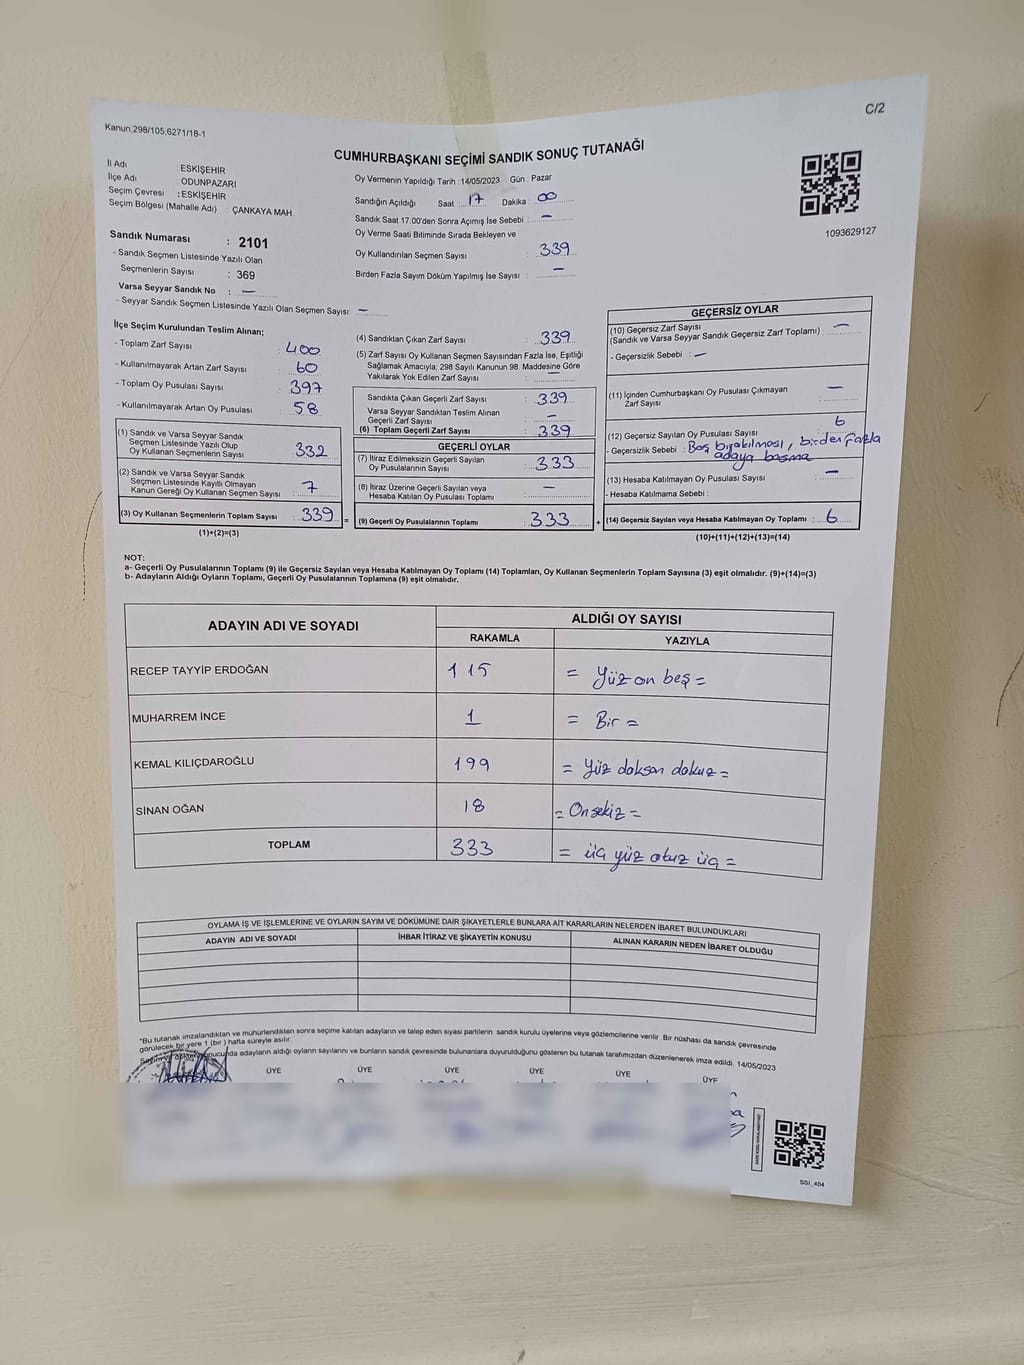 C/2
Kanun.298/105,6271/18-1
CUMHURBAŞKANI SEÇİMİ SANDIK SONUÇ TUTANAĞI
İl Adı : ESKİŞEHİR
İlçe Adı : ODUNPAZARI
Seçim Çevresi : ESKİŞEHİR
Seçim Bölgesi (Mahalle Adı) : ÇANKAYA MAH.
Oy Vermenin Yapıldığı Tarih :14/05/2023 Gün : Pazar
Sandığın Açıldığı Saat : 17 Dakika : 00
Sandık Saat 17.00'den Sonra Açımış İse Sebebi : —
Oy Verme Saati Bitiminde Sırada Bekleyen ve
Oy Kullandırılan Seçmen Sayısı : 339
Birden Fazla Sayım Döküm Yapılmış İse Sayısı : —
1093629127
Sandık Numarası : 2101
- Sandık Seçmen Listesinde Yazılı Olan
Seçmenlerin Sayısı : 369
Varsa Seyyar Sandık No : —
- Seyyar Sandık Seçmen Listesinde Yazılı Olan Seçmen Sayısı: —
İlçe Seçim Kurulundan Teslim Alınan;
- Toplam Zarf Sayısı : 400
- Kullanılmayarak Artan Zarf Sayısı : 60
- Toplam Oy Pusulası Sayısı : 397
- Kullanılmayarak Artan Oy Pusulası : 58
(1) Sandık ve Varsa Seyyar Sandık
Seçmen Listesinde Yazılı Olup
Oy Kullanan Seçmenlerin Sayısı : 332
(2) Sandık ve Varsa Seyyar Sandık
Seçmen Listesinde Kayıtlı Olmayan
Kanun Gereği Oy Kullanan Seçmen Sayısı : 7
(3) Oy Kullanan Seçmenlerin Toplam Sayısı : 339 =
(1)+(2)=(3)
(4) Sandıktan Çıkan Zarf Sayısı : 339
(5) Zarf Sayısı Oy Kullanan Seçmen Sayısından Fazla İse, Eşitliği
Sağlamak Amacıyla; 298 Sayılı Kanunun 98. Maddesine Göre
Yakılarak Yok Edilen Zarf Sayısı : —
Sandıkta Çıkan Geçerli Zarf Sayısı : 339
Varsa Seyyar Sandıktan Teslim Alınan
Geçerli Zarf Sayısı : —
(6) Toplam Geçerli Zarf Sayısı : 339
GEÇERLİ OYLAR
(7) İtiraz Edilmeksizin Geçerli Sayılan
Oy Pusulalarının Sayısı : 333
(8) İtiraz Üzerine Geçerli Sayılan veya
Hesaba Katılan Oy Pusulası Toplamı : —
(9) Geçerli Oy Pusulalarının Toplamı : 333 +
GEÇERSİZ OYLAR
(10) Geçersiz Zarf Sayısı
(Sandık ve Varsa Seyyar Sandık Geçersiz Zarf Toplamı) : —
- Geçersizlik Sebebi : —
(11) İçinden Cumhurbaşkanı Oy Pusulası Çıkmayan
Zarf Sayısı : —
(12) Geçersiz Sayılan Oy Pusulası Sayısı : 6
- Geçersizlik Sebebi : Boş bırakılması, birden fazla
adaya basma
(13) Hesaba Katılmayan Oy Pusulası Sayısı : —
- Hesaba Katılmama Sebebi :
(14) Geçersiz Sayılan veya Hesaba Katılmayan Oy Toplamı : 6
(10)+(11)+(12)+(13)=(14)
NOT:
a- Geçerli Oy Pusulalarının Toplamı (9) ile Geçersiz Sayılan veya Hesaba Katılmayan Oy Toplamı (14) Toplamları, Oy Kullanan Seçmenlerin Toplam Sayısına (3) eşit olmalıdır. (9)+(14)=(3)
b- Adayların Aldığı Oyların Toplamı, Geçerli Oy Pusulalarının Toplamına (9) eşit olmalıdır.
ADAYIN ADI VE SOYADI
ALDIĞI OY SAYISI
RAKAMLA YAZIYLA
RECEP TAYYİP ERDOĞAN 115 = Yüz on beş =
MUHARREM İNCE 1 = Bir =
KEMAL KILIÇDAROĞLU 199 = Yüz doksan dokuz =
SİNAN OĞAN 18 = On sekiz =
TOPLAM 333 = üç yüz otuz üç =
OYLAMA İŞ VE İŞLEMLERİNE VE OYLARIN SAYIM VE DÖKÜMÜNE DAİR ŞİKAYETLERLE BUNLARA AİT KARARLARIN NELERDEN İBARET BULUNDUKLARI
ADAYIN ADI VE SOYADI İHBAR İTİRAZ VE ŞİKAYETİN KONUSU ALINAN KARARIN NEDEN İBARET OLDUĞU
*Bu tutanak imzalandıktan ve mühürlendikten sonra seçime katılan adayların ve talep eden siyasi partilerin sandık kurulu üyelerine veya gözlemcilerine verilir. Bir nüshası da sandık çevresinde
görülecek bir yere 1 (bir) hafta süreyle asılır.
adayların aldığı oyların sayılarını ve bunların sandık çevresinde bulunanlara duyurulduğunu gösteren bu tutanak tarafımızdan düzenlenerek imza edildi. 14/05/2023
ÜYE ÜYE ÜYE ÜYE ÜYE ÜYE
SSI_404